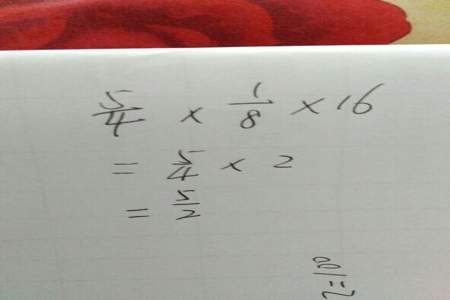 5/4 × 1/8 × 16
= 5/4 × 2
= 5/2